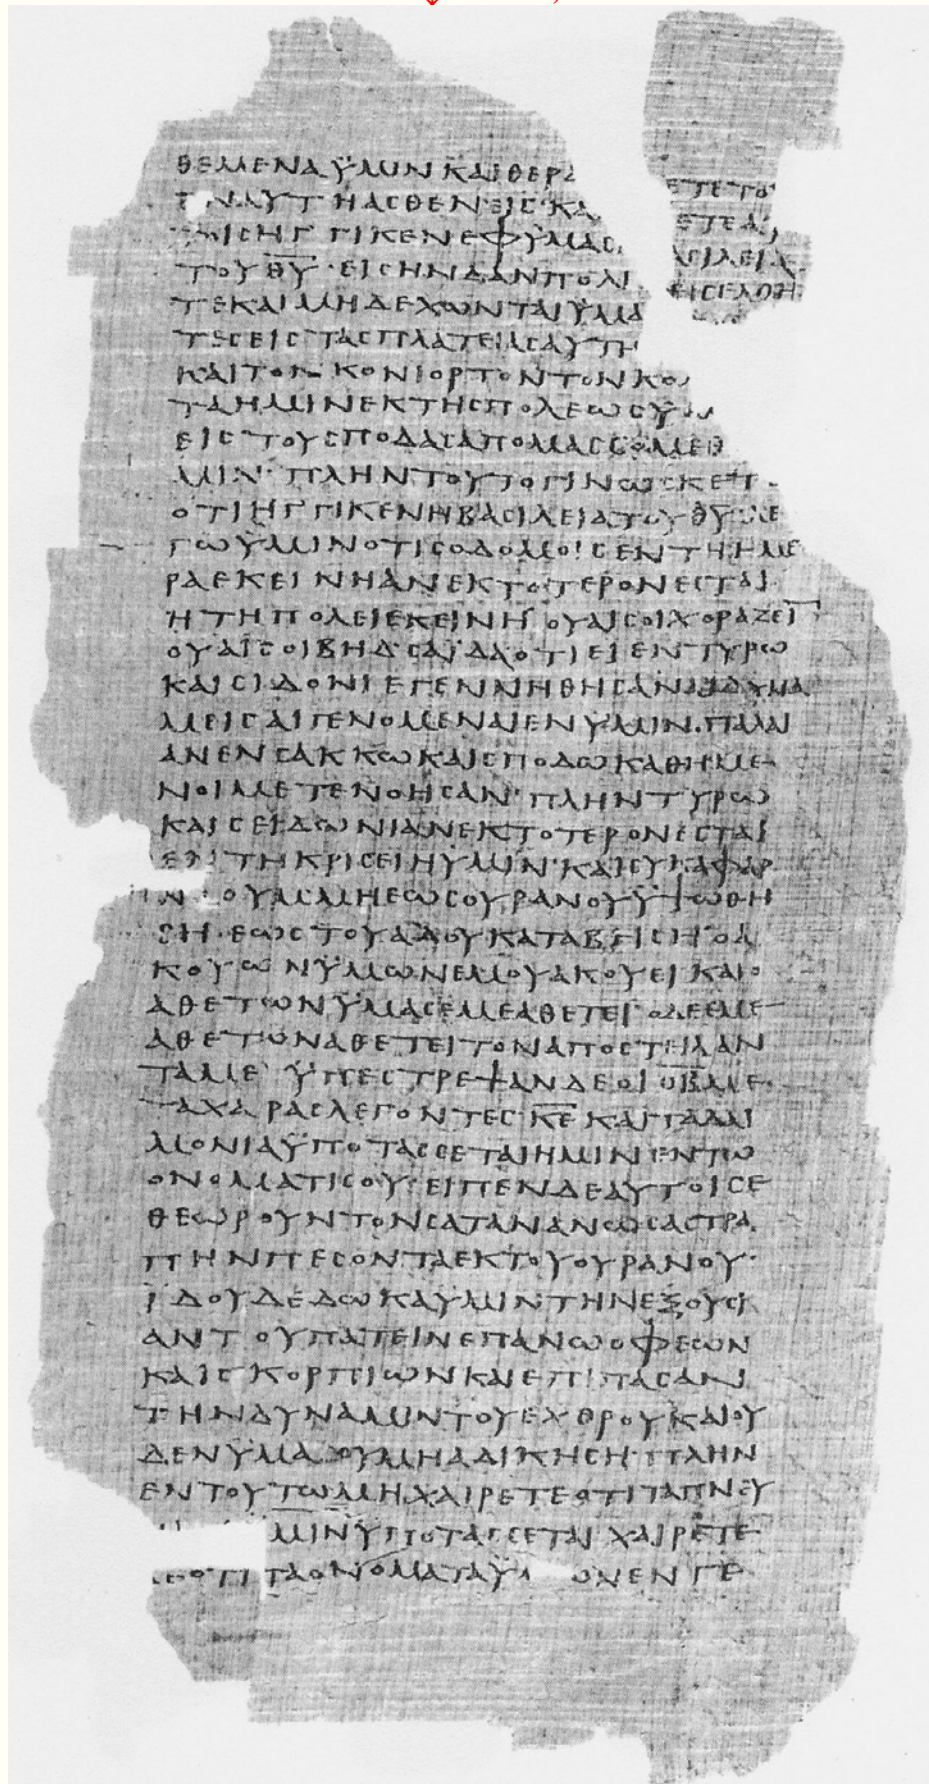 ΘΕΜΕΝΑΫΜΙΝΚΑΙΘΕΡΑ ΕΤΕΤΟΥ
ΕΝΑΥΤΗΑϹΘΕΝΕΙϹΚΑ ΕΤΕΑΥ
ΤΟΙϹΗΓΓΙΚΕΝΕΦΥΜΑϹ ΑϹΙΛΕΙΑ
ΤΟΥΘ̅Υ̅·ΕΙϹΗΝΔΑΝΠΟΛΙ ΕΙϹΕΛΘΗ
ΤΕΚΑΙΜΗΔΕΧΩΝΤΑΙΫΜΑ
ΤΕϹΕΙϹΤΑϹΠΛΑΤΕΙΑϹΑΥΤΗ
ΚΑΙΤΟΝΚΟΝΙΟΡΤΟΝΤΟΝΚΟ
ΤΑΗΜΙΝΕΚΤΗϹΠΟΛΕΩϹΫ
ΕΙϹΤΟΥϹΠΟΔΑϹΑΠΟΜΑϹϹΟΜΕΘ
ΜΙΝ·ΠΛΗΝΤΟΥΤΟΓΙΝΩϹΚΕΤ
ΟΤΙΗΓΓΙΚΕΝΗΒΑϹΙΛΕΙΑΤΟΥΘ̅Υ̅ΛΕ
ΓΩΫΜΙΝΟΤΙϹΟΔΟΜΟΙϹΕΝΤΗΗΜΕ
ΡΑΕΚΕΙΝΗΑΝΕΚΤΟΤΕΡΟΝΕϹΤΑΙ
ΗΤΗΠΟΛΕΙΕΚΕΙΝΗ ΟΥΑΙϹΟΙΧΟΡΑΖΕΙ̅
ΟΥΑΙϹΟΙΒΗΔϹΑΪΔΑΟΤΙΕΙΕΝΤΥΡΩ
ΚΑΙϹΙΔΟΝΙΕΓΕΝΝΗΘΗϹΑΝΑΙΔΥΝΑ
ΜΕΙϹΑΙΓΕΝΟΜΕΝΑΙΕΝΥΜΙΝ·ΠΑΛΑΙ
ΑΝΕΝϹΑΚΚΩΚΑΙϹΠΟΔΩΚΑΘΗΜΕ
ΝΟΙΜΕΤΕΝΟΗϹΑΝ·ΠΛΗΝΤΥΡΩ
ΚΑΙϹΕΙΔΩΝΙΑΝΕΚΤΟΤΕΡΟΝΕϹΤΑΙ
ΕΝΤΗΚΡΙϹΕΙΗΥΜΙΝ·ΚΑΙϹΥΚΑΦΑΡ
Ν ΟΥΜ ΜΗΕΩϹΟΥΡΑΝΟΥΫΨΩΘΗ
ϹΗ·ΕΩϹΤΟΥΑΔΟΥΚΑΤΑΒΗϹΗ ΟΑ
ΚΟΥΩΝΫΜΩΝΕΜΟΥΑΚΟΥΕΙΚΑΙΟ
ΑΘΕΤΩΝΫΜΑϹΕΜΕΑΘΕΤΕΙ ΟΔΕΕΜΕ
ΑΘΕΤΩΝΑΘΕΤΕΙΤΟΝΑΠΟϹΤΕΙΛΑΝ
ΤΑΜΕ ΫΠΕϹΤΡΕΨΑΝΔΕΟΙΟ̅Β̅ΜΕ
ΤΑΧΑΡΑϹΛΕΓΟΝΤΕϹΚ̅Ε̅ΚΑΙΤΑΔΑΙ
ΜΟΝΙΑΫΠΟΤΑϹϹΕΤΑΙΗΜΙΝΕΝΤΩ
ΟΝΟΜΑΤΙϹΟΥ·ΕΙΠΕΝΔΕΑΥΤΟΙϹΕ
ΘΕΩΡΟΥΝΤΟΝϹΑΤΑΝΑΝΩϹΑϹΤΡΑ
ΠΗΝΠΕϹΟΝΤΑΕΚΤΟΥΟΥΡΑΝΟΥ·
ΪΔΟΥΔΕΔΩΚΑΥΜΙΝΤΗΝΕΞΟΥϹΙ
ΑΝΤΟΥΠΑΤΕΙΝΕΠΑΝΩΟΦΕΩΝ
ΚΑΙϹΚΟΡΠΙΩΝΚΑΙΕΠΙΠΑϹΑΝ
ΤΗΝΔΥΝΑΜΙΝΤΟΥΕΧΘΡΟΥΚΑΙΟΥ
ΔΕΝΫΜΑϹΟΥΜΗΑΔΙΚΗϹΗ·ΠΛΗΝ
ΕΝΤΟΥΤΩΜΗΧΑΙΡΕΤΕΟΤΙΤΑΠΝΕΥ
ΜΙΝΫΠΟΤΑϹϹΕΤΑΙ ΧΑΙΡΕΤΕ
ΔΕΟΤΙΤΑΟΝΟΜΑΤΑΫΜΩΝΕΝΓΕ